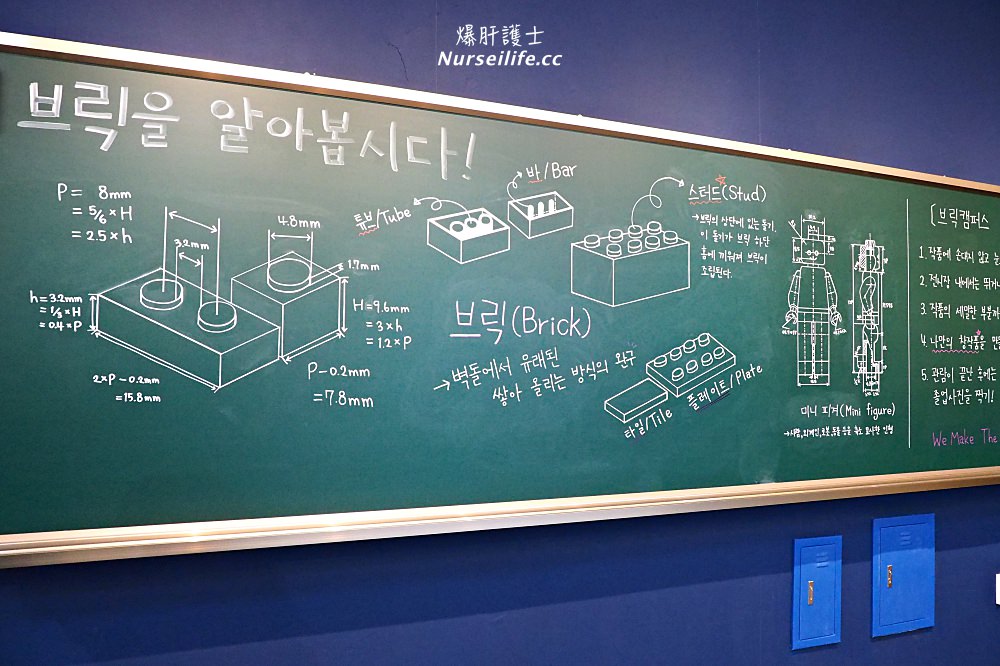 爆肝護士
Nurseilife.cc
브릭을 알아봅시다!
P = 8mm
= 5/6 × H
= 2.5 × h
3.2mm
4.8mm
1.7mm
h = 3.2mm
= 1/3 × H
= 0.4 × P
H = 9.6mm
= 3 × h
= 1.2 × P
2×P - 0.2mm
= 15.8mm
P - 0.2mm
= 7.8mm
튜브/Tube
바/Bar
스터드(Stud)
→브릭의 상단에 있는 돌기.
이 돌기가 브릭 하단
홈에 끼워져 브릭이
조립된다.
브릭(Brick)
→ 벽돌에서 유래된
쌓아 올리는 방식의 완구
타일/Tile
플레이트/Plate
미니 피겨(Mini figure)
→사람, 외계인, 로봇, 동물 등을 묘사한 인형
[브릭캠퍼스
1. 작품에 손대지 않고 눈
2. 전시장 내에서는 뛰거나
3. 작품의 세밀한 부분까
4. 나만의 창작품을 만들
5. 관람이 끝난 후에는
졸업사진을 찍기!
We Make The